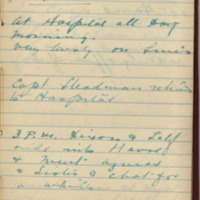 At Hospital all day
morning.
Very lively on lines
Capt. Steadman returned
to Hospital
3 P.M. Dixon & Self
ride into Havre
& "meet" Agnes
& chat for
a while.